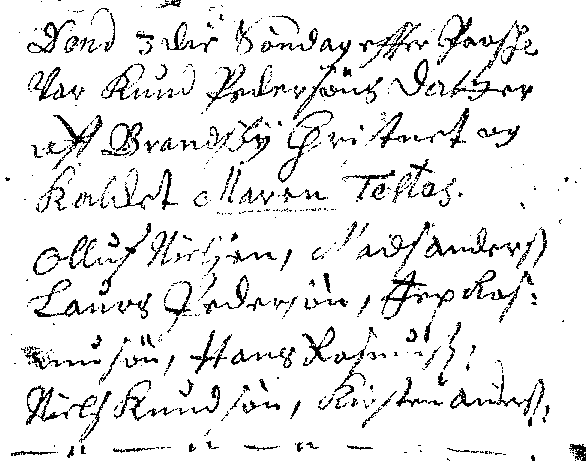 Dend 3die Söndag effter Paaske
Var Knud Pedersöns Datter
aff Brandsby Christnet og
Kaldet Maren Testes.
Olluf Nielsen, Mads anders
Laurs Pedersön, Jep Ras:
musön, Hans Rasmus:
Niels Knudsön, Kirsten anders: